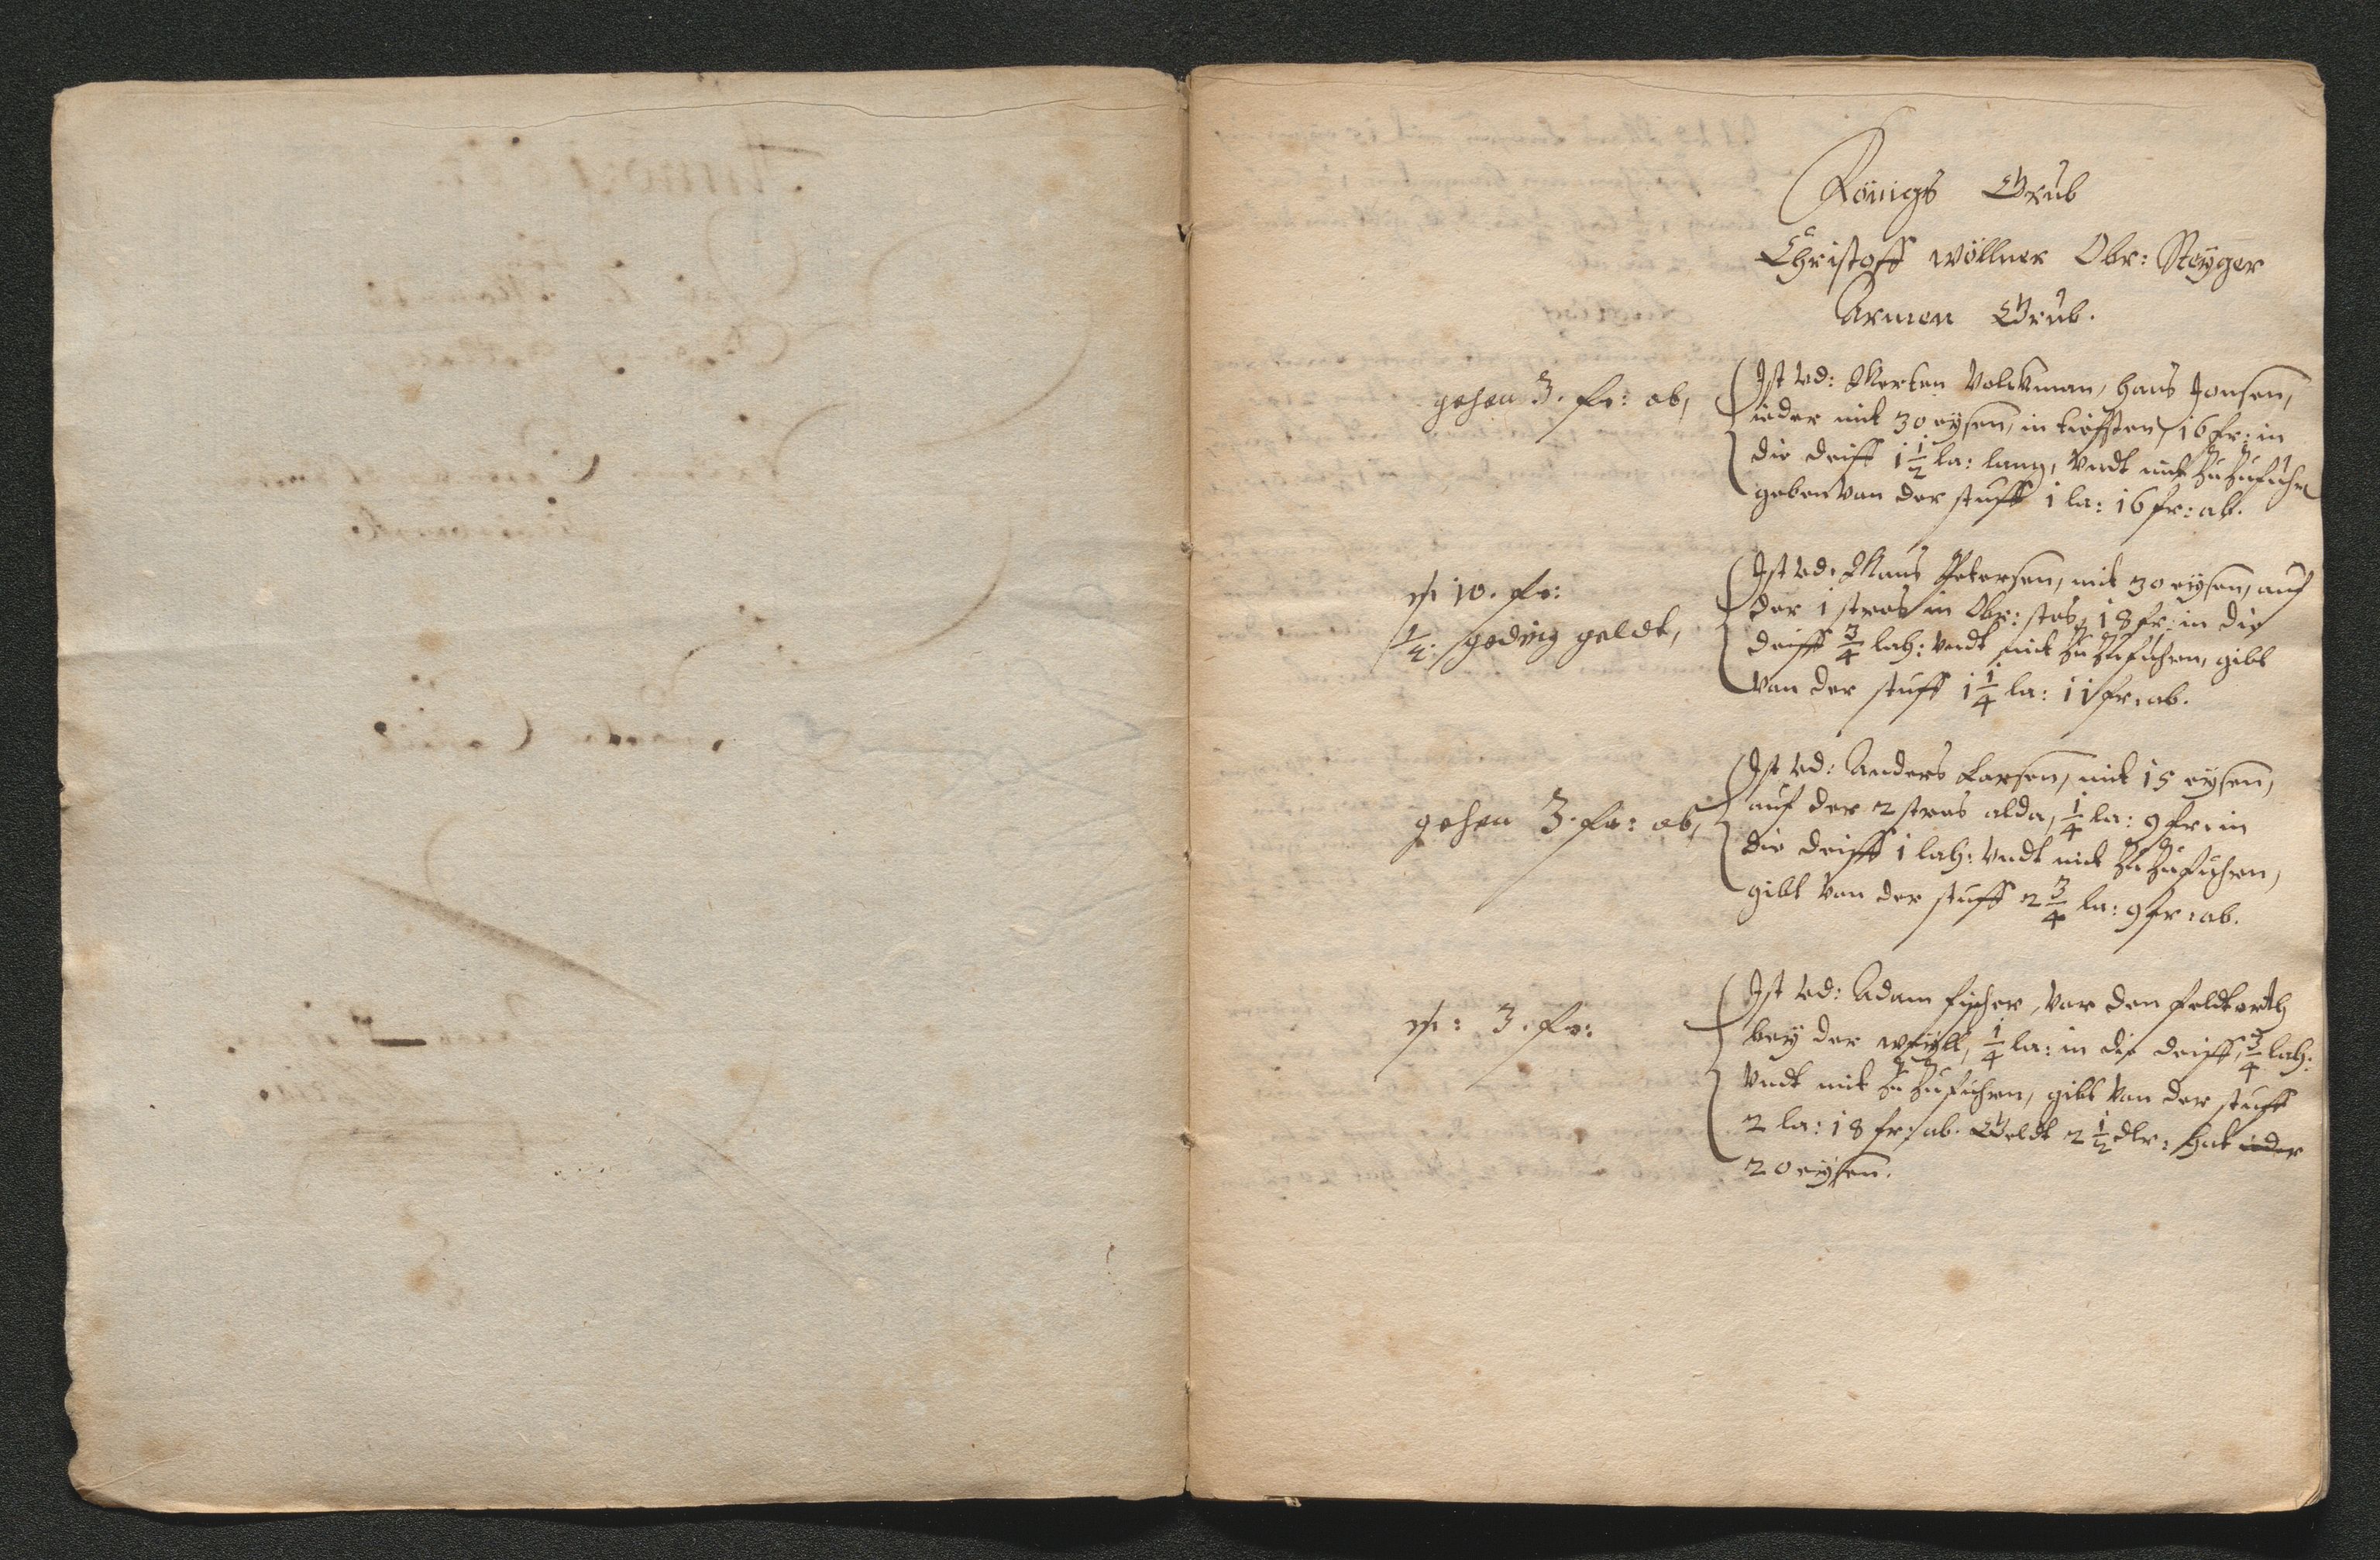 Königs Grub
Christoff Wöllner Obr: Steÿger
Armen Grub.
gehen 3. fr: ab,
Ist vd: Merten Volckman, Hans Jonsen,
ieder mit 30 eÿsen, in tieffsten, 16 fr: in
die deiff 1 1/2 la: lang, Vndt mit Zu Zufuhrn
geben Van der stuff 1 la: 16 fr: ab.
10. fr:
1/4: geding geldt,
Ist vd: Maus Petersen, mit 30 eÿsen, auf
der 1 stros in Obr: stos, 18 fr: in die
deiff 3/4 lah: Vndt mit Zu Zufuhren, gibt
Van der stuff 1 1/4 la: 11 fr: ab.
gehen 3. fr: ab,
Ist vd: Anders Larsen, mit 15 eÿsen,
auf der 2 stros alda, 1/4 la: 9 fr: in
die deiff 1 lah: Vndt mit Zu Zufuhren,
gibt Van der stuff 2 3/4 la: 9 fr: ab.
3. fr:
Ist vd: Adam Fischer, Var den feldtorth
beÿ der weÿll, 1/4 la: in die deiff, 3/4 lah:
Vndt mit Zu Zufuhren, gibt Van der stuff
2 la: 18 fr: ab. Geldt 2 1/2 dlr: hat ieder
20 eÿsen.